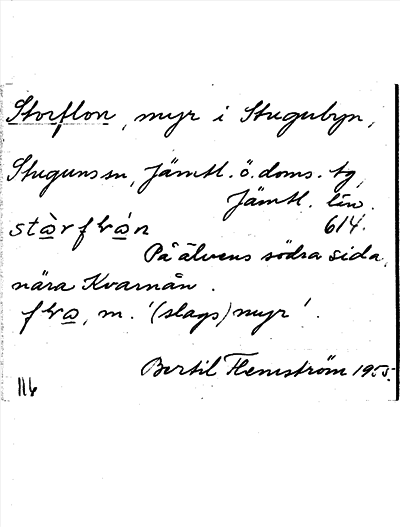 Storflon, myr i Stugubyn,
Stuguns sn, Jämtl. ö. doms. tg,
Jämtl. län.
614.
På älvens södra sida,
nära Kvarnån.
m. '(slags) myr'.
Bertil Flemström 1955.
116